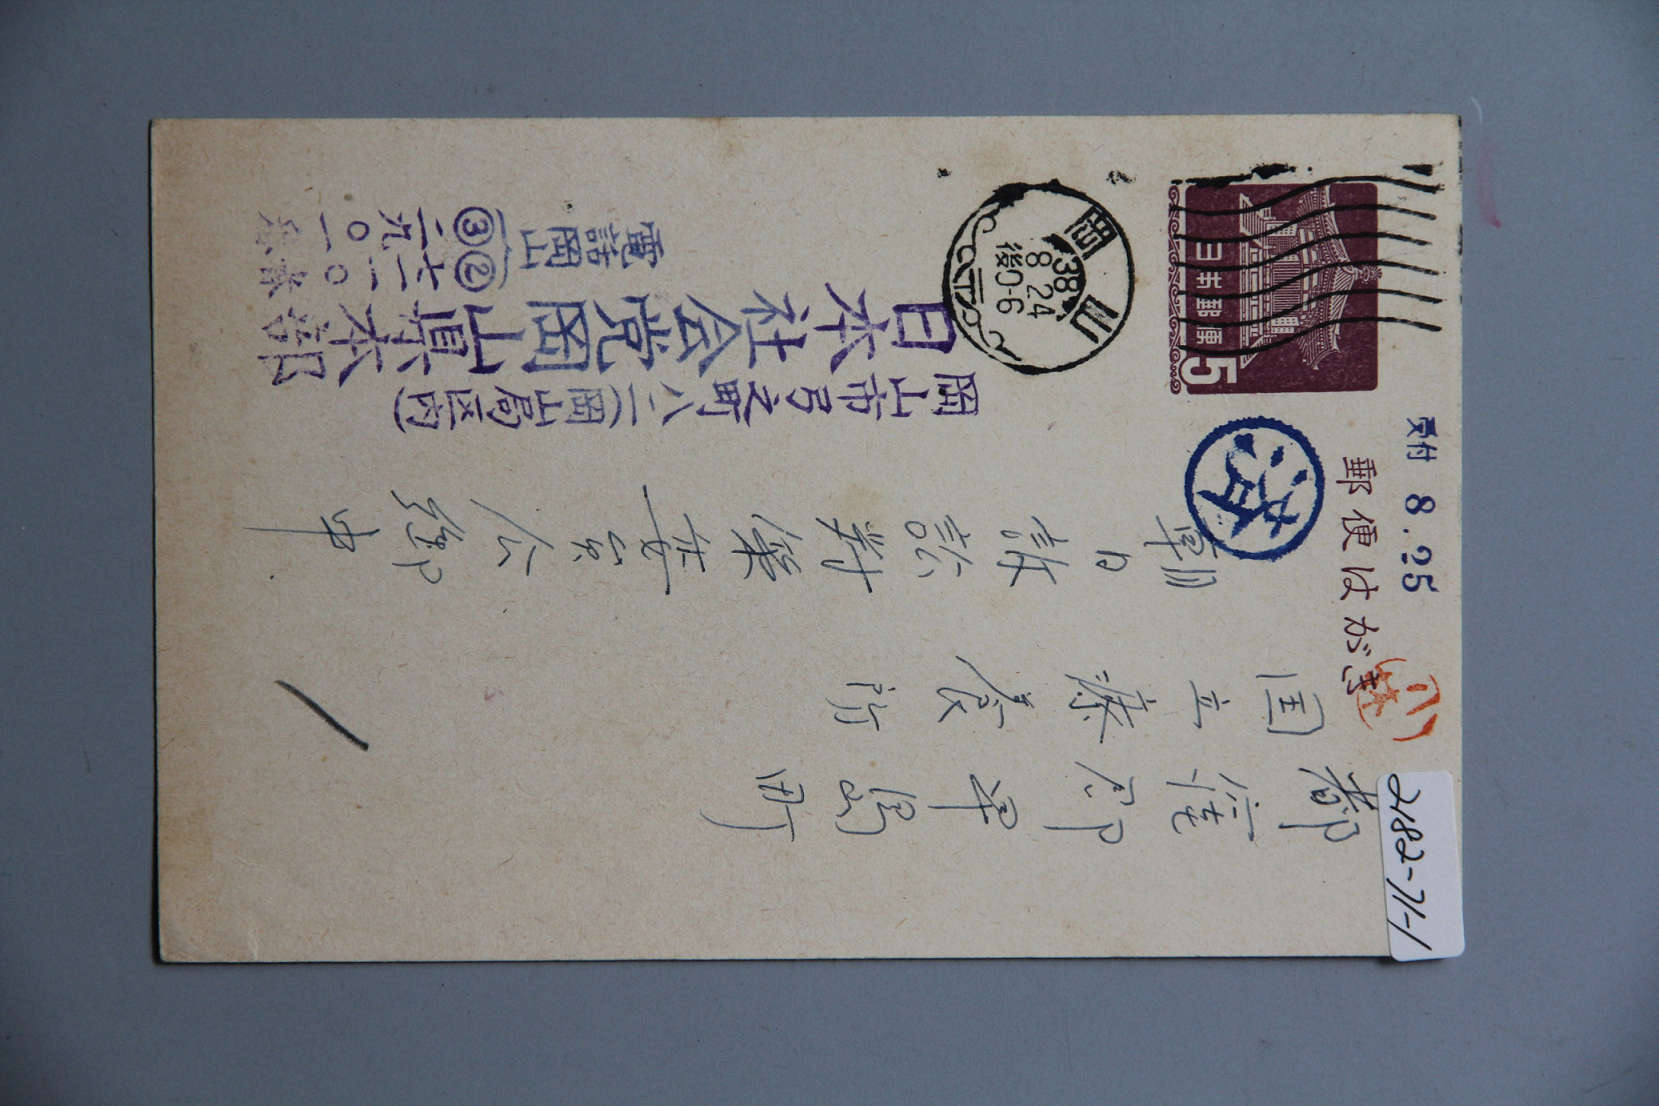 郵便はがき
受付 8.25
日本郵便
5
岡山
38
8 24
後0-6
済
2182-71-1
都窪郡早島町
国立療養所
朝日訴訟対策委員会御中
岡山市弓之町八二(岡山局区内)
日本社会党岡山県本部
電話岡山
②
③二九〇一